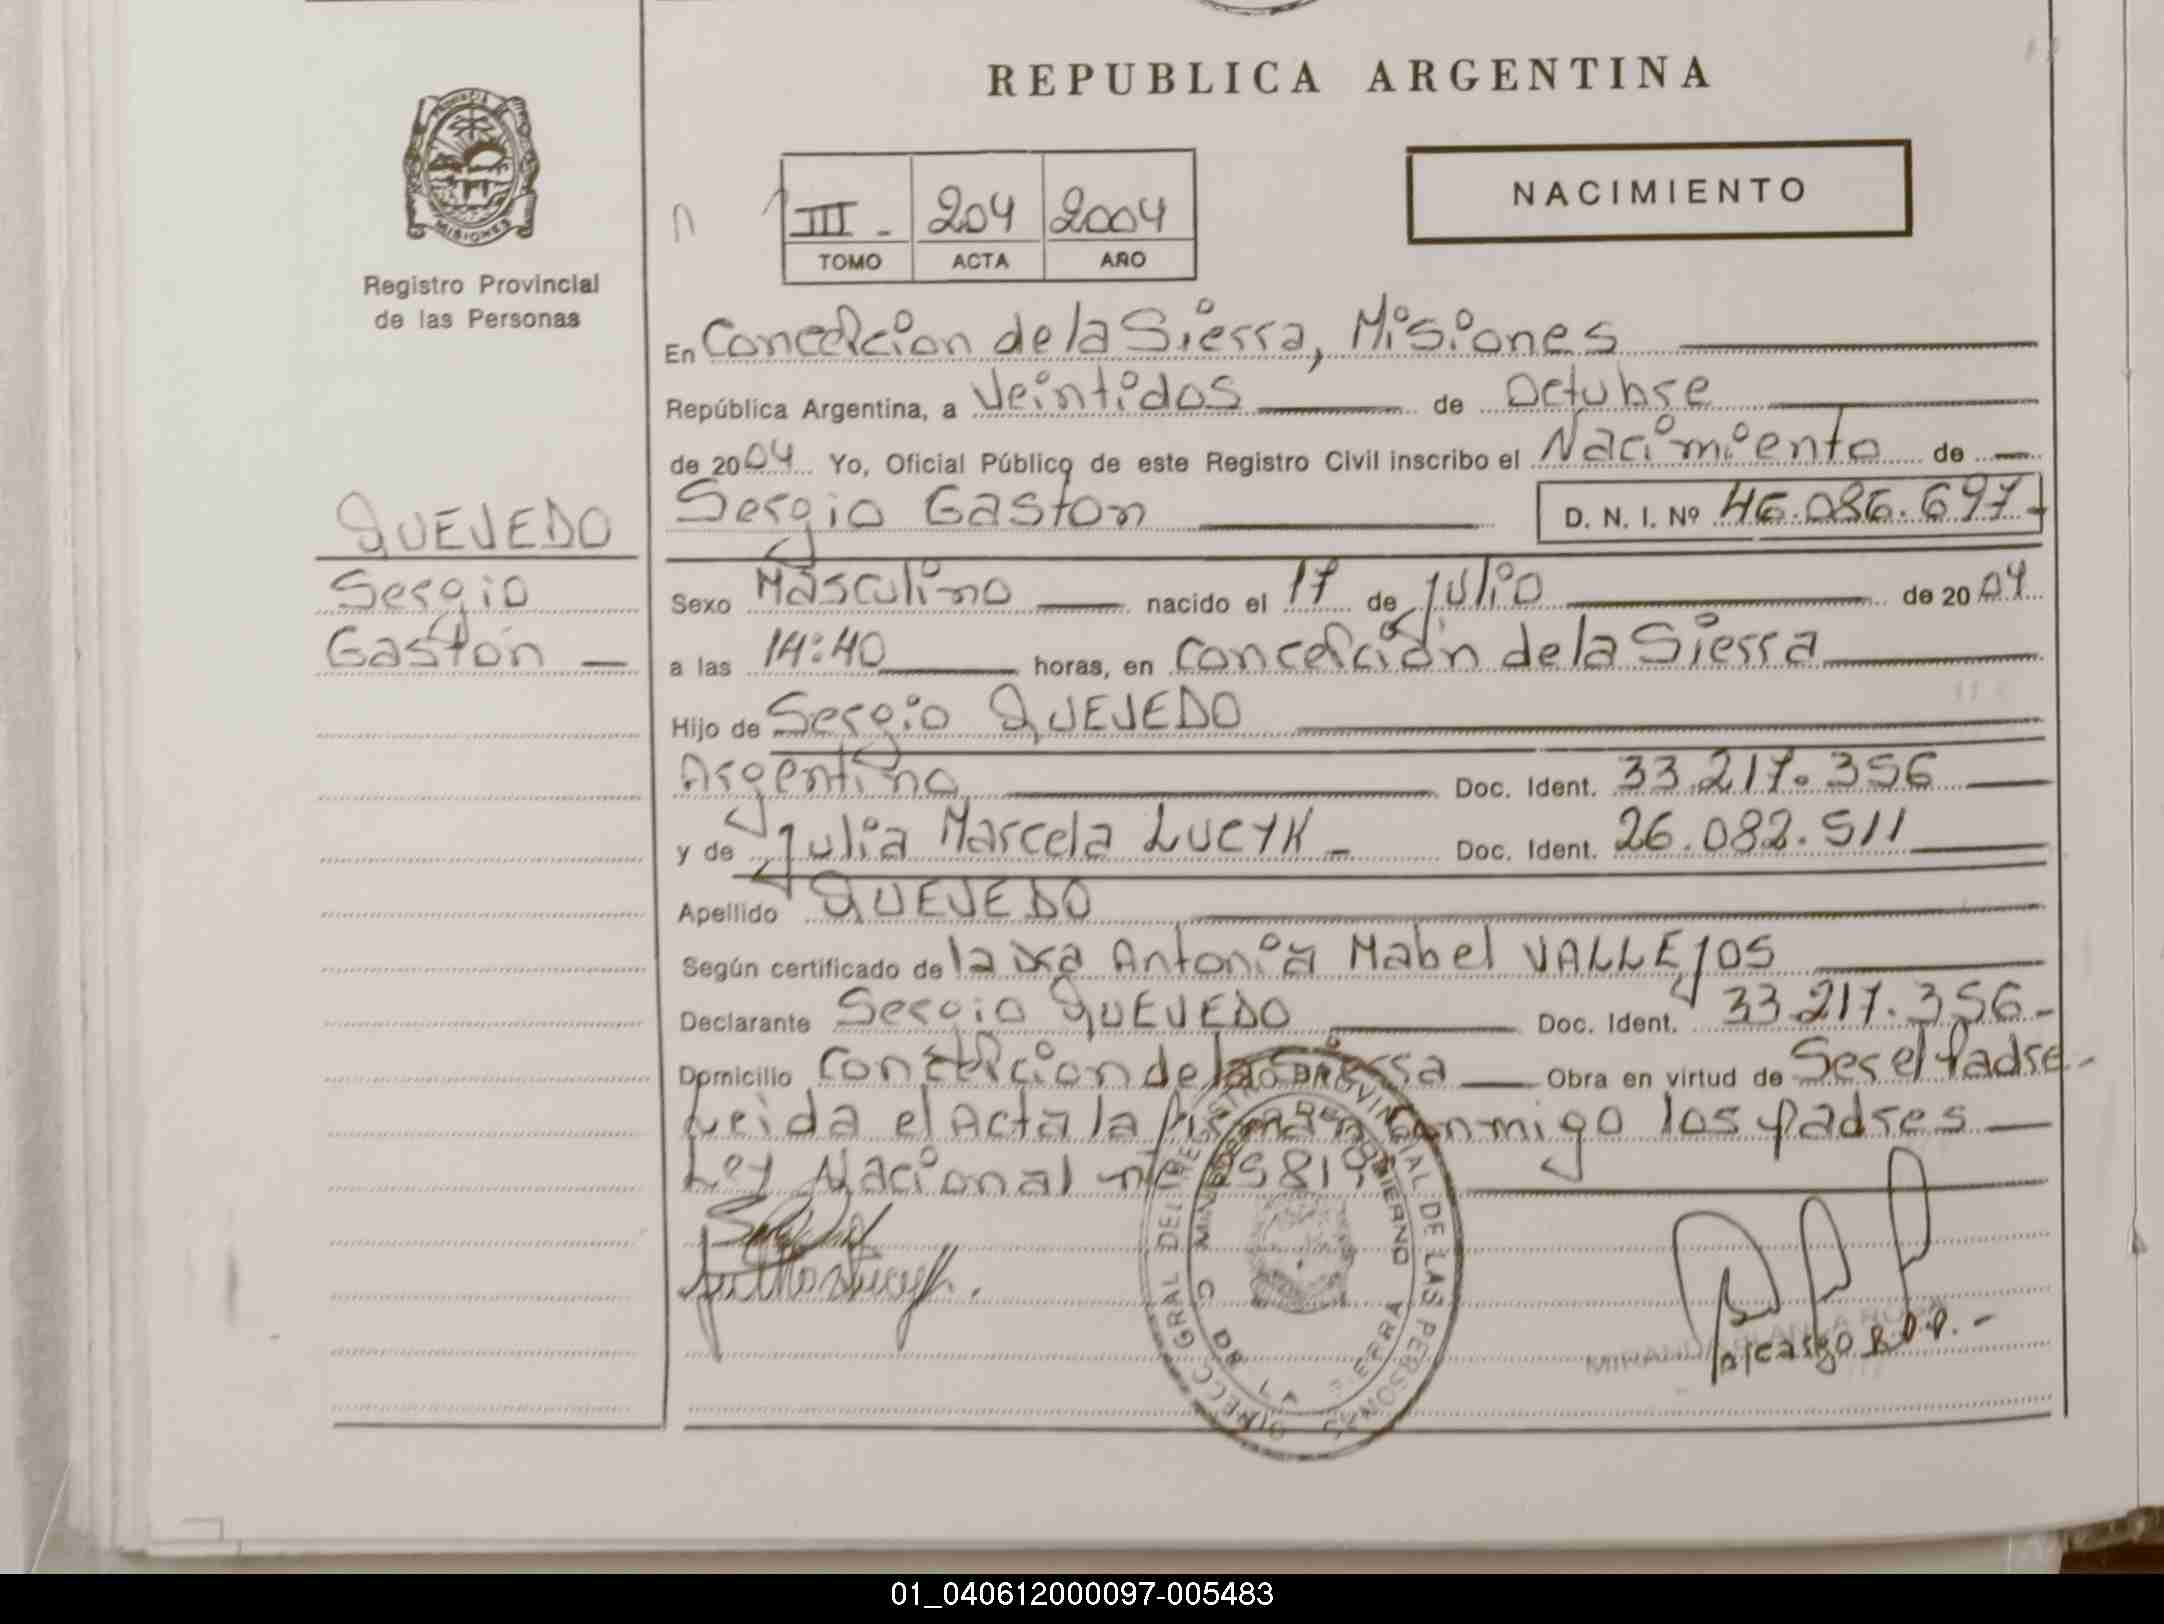 REPUBLICA ARGENTINA
MISIONES
Registro Provincial
de las Personas
III - 204 2004
TOMO ACTA AÑO
NACIMIENTO
En Concepcion de la Sierra, Misiones
República Argentina, a Veintidos de Octubre
de 2004 Yo, Oficial Público de este Registro Civil inscribo el Nacimiento de
QUEVEDO
Sergio
Gastón
Sergio Gaston D. N. I. Nº 46.086.697
Sexo Masculino nacido el 17 de julio de 2004
a las 14:40 horas, en Concepción de la Sierra
Hijo de Sergio QUEVEDO
Argentino Doc. Ident. 33.217.356
y de Julia Marcela LUCYK - Doc. Ident. 26.082.511
Apellido QUEVEDO
Según certificado de la Antonia Mabel VALLEJOS
Declarante Sergio QUEVEDO Doc. Ident. 33.217.356-
Domicilio Concepcion de la Sierra Obra en virtud de Ser el Padre-
Leida el Acta la firman conmigo los padres
Ley Nacional nº 25819
DIRECC. GRAL. DEL REGISTRO PROVINCIAL DE LAS PERSONAS
a/cargo R.P.P.-
01_040612000097-005483